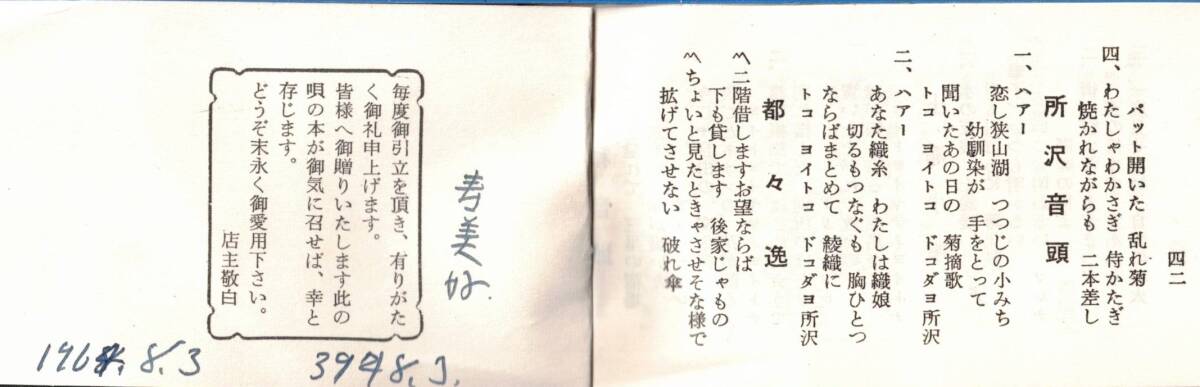 四二
パット開いた 乱れ菊
四、わたしゃわかさぎ 侍かたぎ
焼かれながらも 二本差し
所沢音頭
一、ハアー
恋し狭山湖 つつじの小みち
幼馴染が 手をとって
聞いたあの日の 菊摘歌
トコ ヨイトコ ドコダヨ所沢
二、ハアー
あなた織糸 わたしは織娘
切るもつなぐも 胸ひとつ
ならばまとめて 綾織に
トコ ヨイトコ ドコダヨ所沢
都々逸
〽二階借しますお望ならば
下も貸します 後家じゃもの
〽ちょいと見たときゃさせそな様で
拡げてさせない 破れ傘
寿美好
毎度御引立を頂き、有りがた
く御礼申上げます。
皆様へ御贈りいたします此の
唄の本が御気に召せば、幸と
存じます。
どうぞ末永く御愛用下さい。
店主敬白
8.3